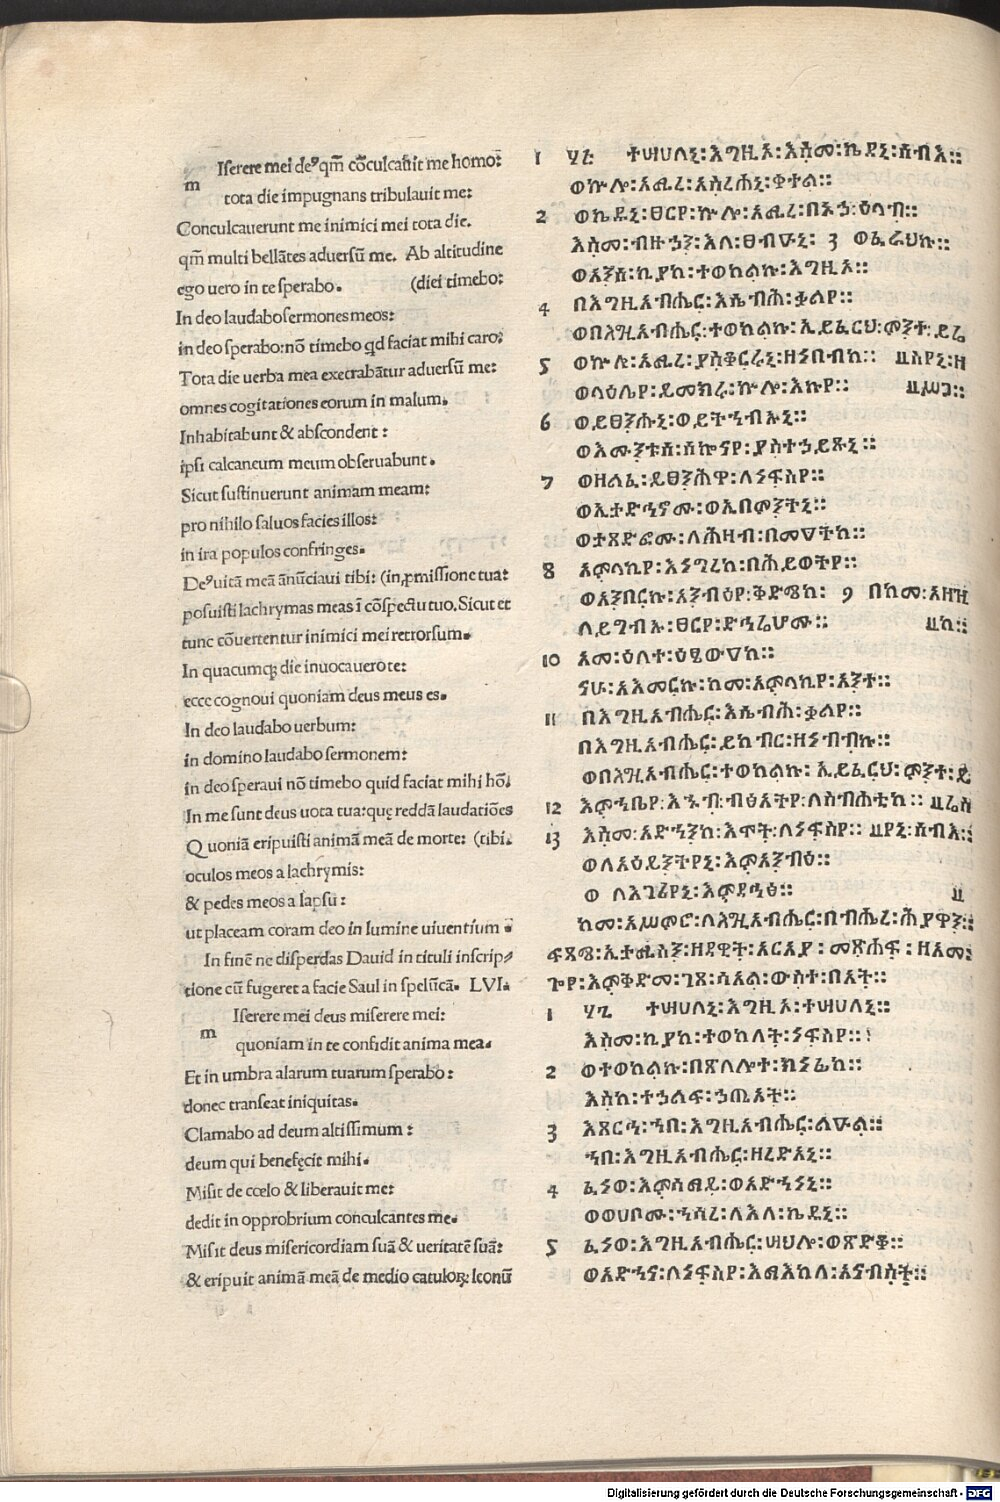 Iserere mei de⁹ qm̄ cōculcauit me homo:
m
tota die impugnans tribulauit me:
Conculcauerunt me inimici mei tota die.
qm̄ multi bellātes aduersū me. Ab altitudine
ego uero in te sperabo. (diei timebo:
In deo laudabo sermones meos:
in deo sperabo: nō timebo qd faciat mihi caro:
Tota die uerba mea execrabātur aduersū me:
omnes cogitationes eorum in malum.
Inhabitabunt & abscondent:
ipsi calcaneum meum obseruabunt.
Sicut sustinuerunt animam meam:
pro nihilo saluos facies illos:
in ira populos confringes.
De⁹ uitā meā ānūciaui tibi: (in ꝓmissione tua:
posuisti lachrymas meas ī cōspectu tuo. Sicut et
tunc cōuertentur inimici mei retrorsum.
In quacumqꝫ die inuocauero te:
ecce cognoui quoniam deus meus es.
In deo laudabo uerbum:
in domino laudabo sermonem:
in deo speraui nō timebo quid faciat mihi hō.
In me sunt deus uota tua: quę reddā laudatiōes
Quoniā eripuisti animā meā de morte: (tibi.
oculos meos a lachrymis:
& pedes meos a lapsu:
ut placeam coram deo in lumine uiuentium.
In finē ne disperdas Dauid in tituli inscrip⸗
tione cū fugeret a facie Saul in spelūcā. LVI.
Iserere mei deus miserere mei:
m
quoniam in te confidit anima mea.
Et in umbra alarum tuarum sperabo:
donec transeat iniquitas.
Clamabo ad deum altissimum:
deum qui benefęcit mihi.
Misit de cœlo & liberauit me:
dedit in opprobrium conculcantes me.
Misit deus misericordiam suā & ueritatē suā:
& eripuit animā meā de medio catuloꝝ: leonū
1 ፶፭ ተሣሀለኒ፡እግዚኦ፡እስመ፡ኬደኒ፡ሰብእ።
ወኵሎ፡አሚረ፡አስረሐኒ፡ቀትል።
2 ወኬዱኒ፡ፀርየ፡ኵሎ፡አሚረ፡በኑኀ፡ዕለት።
እስመ፡ብዙኃን፡እለ፡ፀብኡኒ፡ 3 ወፈራህኩ።
ወአንሰ፡ኪያከ፡ተወከልኩ፡እግዚኦ።
4 በእግዚአብሔር፡እሴብሕ፡ቃልየ።
ወበእግዚአብሔር፡ተወከልኩ፡ኢይፈርህ፡ምንተ፡ይሬ
5 ወኵሎ፡አሚረ፡ያስቆርሩኒ፡ዘነበብከ። ፡፡ስየኒ፡ዘ
ወላዕሌየ፡ይመክሩ፡ኵሎ፡እኩየ። ፡፡ሥጋ።
6 ወይፀንሑኒ፡ወይትኀብኡኒ።
ወእሙንቱሰ፡ሰኮናየ፡ያስተኃይጹኒ።
7 ወዘልፈ፡ይፀንሕዋ፡ለነፍስየ።
ወኢታድኅኖሙ፡ወኢበምንትኒ።
ወታጸድፎሙ፡ለሕዛብ፡በመዓትከ።
8 አምላኪየ፡እነግረከ፡በሕይወትየ።
ወአንበርኩ፡አንብዕየ፡ቅድሜከ፡ 9 በከመ፡አዘዝ
ለይግብኡ፡ፀርየ፡ድኅሬሆሙ። ፡፡ከ።
10 አመ፡ዕለተ፡እጼውዓከ።
ናሁ፡አእመርኩ፡ከመ፡አምላኪየ፡አንተ።
11 በእግዚአብሔር፡እሴብሕ፡ቃልየ።
በእግዚአብሔር፡ይከብር፡ዘነበብኩ።
ወበእግዚአብሔር፡ተወከልኩ፡ኢይፈርህ፡ምንተ፡ይ
12 እምኀቤየ፡እሁብ፡ብፅአትየ፡ለስብሐቲከ። ፡፡ሬስ
13 እስመ፡አድኀንካ፡እሞት፡ለነፍስየ። ፡፡የኒ፡ሰብእ።
ወለአዕይንትየኒ፡እምአንብዕ።
ወ ለእገሪየኒ፡እምዳኅፅ።
ከመ፡አሥምሮ፡ለእግዚአብሔር፡በብሔረ፡ሕያዋን።
ፍጻሜ፡ኢታማስን፡ዘዳዊት፡አርአያ፡መጽሐፍ፡ዘአመ፡
ጐየ፡እምቅድመ፡ገጸ፡ሳኦል፡ውስተ፡በአት።
1 ፶፮ ተሣሀለኒ፡እግዚኦ፡ተሣሀለኒ።
እስመ፡ኪያከ፡ተወከለት፡ነፍስየ።
2 ወተወከልኩ፡በጽላሎተ፡ክነፊከ።
እስከ፡ተኃልፍ፡ኃጢአት።
3 እጸርኅ፡ኀበ፡እግዚአብሔር፡ልዑል።
ኀበ፡እግዚአብሔር፡ዘረድአኒ።
4 ፈነወ፡እምሰማይ፡ወአድኀነኒ።
ወወሀቦሙ፡ኀሳረ፡ለእለ፡ኬዱኒ።
5 ፈነወ፡እግዚአብሔር፡ሣህሎ፡ወጽድቆ።
ወአድኀና፡ለነፍስየ፡እማእከለ፡አናብስት።
Digitalisierung gefördert durch die Deutsche Forschungsgemeinschaft - DFG